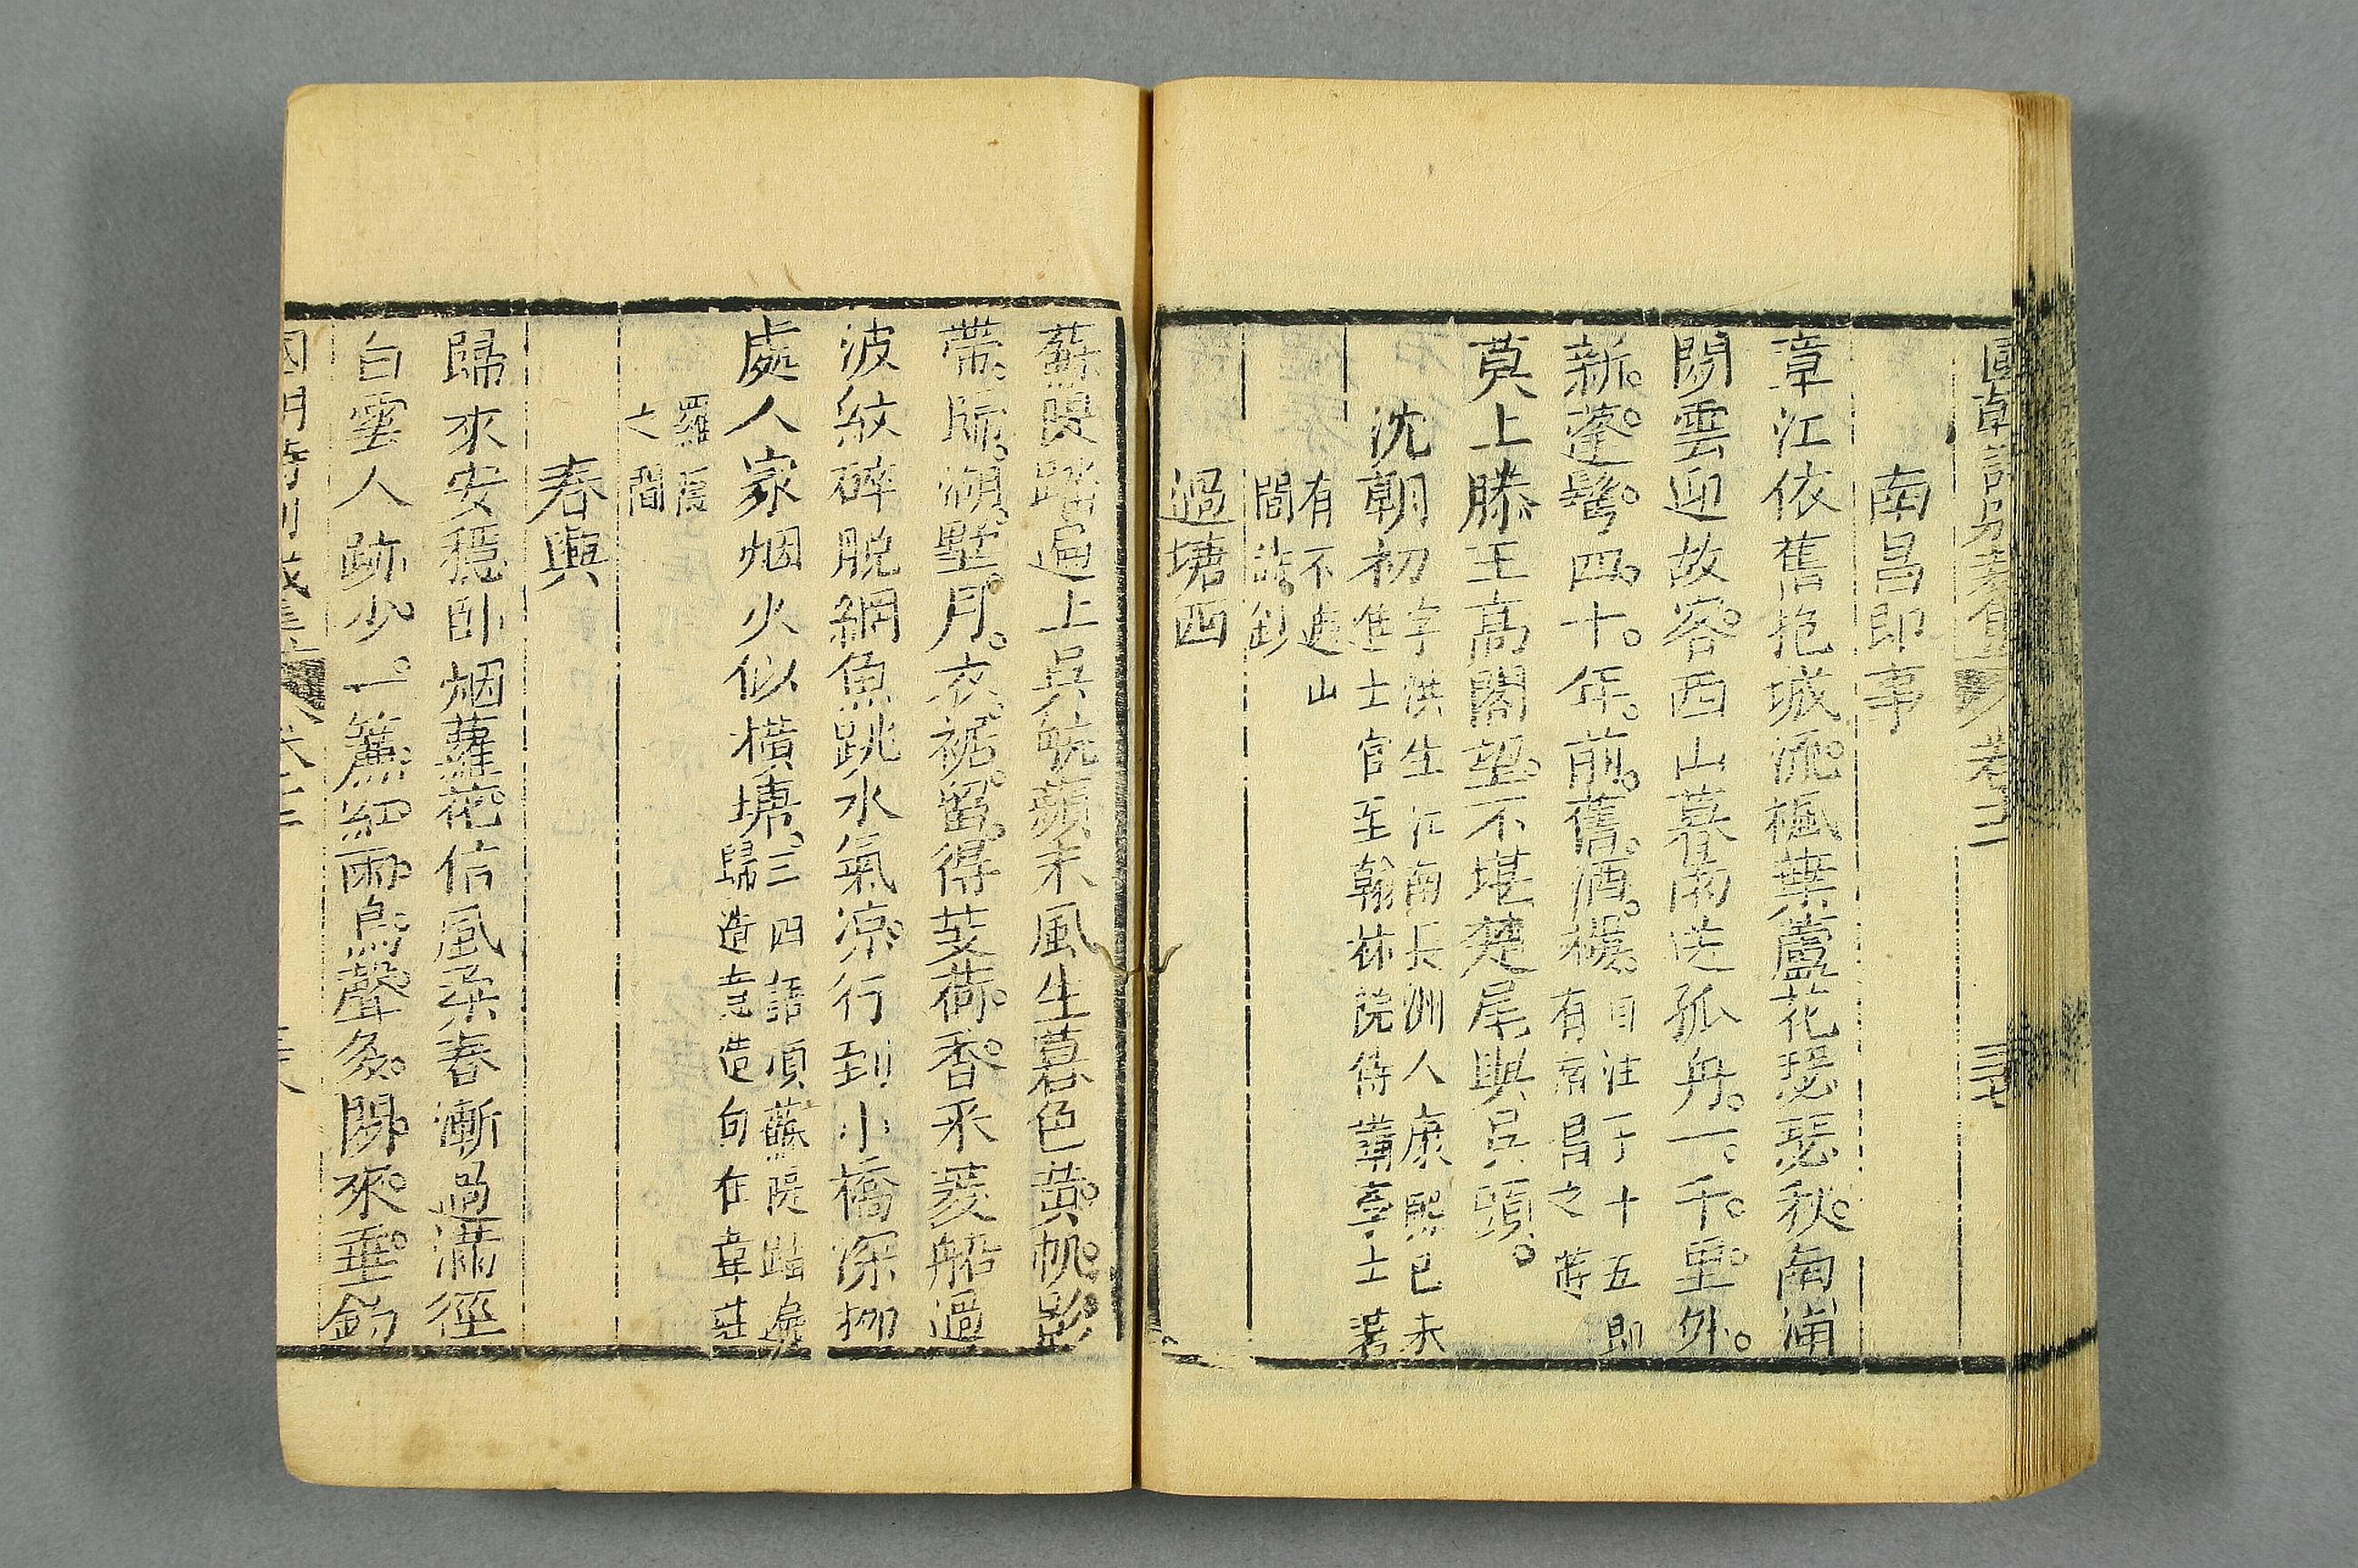 國朝詩別裁集 卷三 三七
南昌即事
章江依舊抱城流。楓葉蘆花瑟瑟秋。南浦
閒雲迎故客。西山暮雨送孤舟。一千里外
新蓬鬢。四十年前舊酒樓。自注丁十五即有南昌之遊
莫上滕王高閣望。不堪楚尾與吳頭。
沈朝初 字洪生江南長洲人康熙己未進士官至翰林院侍講學士著
有不遮山閣詩鈔
過塘西
蘇隄踏遍上吳航。蘋末風生暮色黃。帆影
帶歸湖墅月。衣裾留得芰荷香。采菱船過
波紋碎。脫網魚跳水氣涼。行到小橋深柳
處。人家烟火似橫塘。三四語頂蘇隄踏遍歸造意造句在韋莊
羅隱之間
春興
歸來安穩臥烟蘿。花信風柔春漸過。滿徑
白雲人跡少。一簾紅雨鳥聲多。閒來垂釣
國朝詩別裁集 卷三